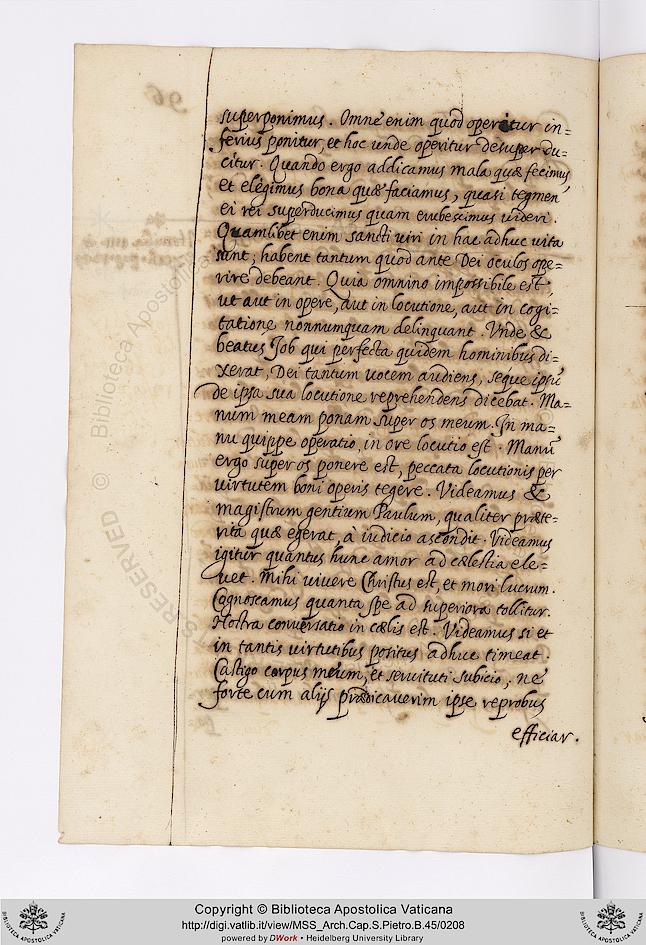 superponimus. Omne enim quod operitur in=
ferius ponitur, et hoc unde operitur desuper du=
citur. Quando ergo addicamus mala quæ fecimus,
et elegimus bona quæ faciamus, quasi tegmen
ei rei superducimus quam erubescimus videri.
Quamlibet enim sancti viri in hac adhuc vita
sint, habent tantum quod ante Dei oculos ope=
rire debeant. Quia omnino impossibile est,
ut aut in opere, aut in locutione, aut in cogi=
tatione nonnumquam delinquant. Unde &
beatus Job qui perfecta quidem hominibus di=
xerat, Dei tantum vocem audiens, seque ipsū
de ipsa sua locutione reprehendens dicebat. Ma=
num meam ponam super os meum. In ma=
nu quippe operatio, in ore locutio est. Manū
ergo super os ponere est, peccata locutionis per
virtutem boni operis tegere. Videamus &
magistrum gentium Paulum, qualiter præte=
rita quæ egerat, à iudicio ascondit. Videamus
igitur quantus hunc amor ad cælestia ele=
vet. Mihi vivere Christus est, et mori lucrum.
Cognoscamus quanta spe ad superiora tollitur.
Nostra conversatio in cælis est. Videamus si et
in tantis virtutibus positus adhuc timeat.
Castigo corpus meum, et servituti subicio, ne
forte cum alijs prædicaverim ipse reprobus
efficiar.
Biblioteca Apostolica
©
RESERVED
Copyright © Biblioteca Apostolica Vaticana
http://digi.vatlib.it/view/MSS_Arch.Cap.S.Pietro.B.45/0208
powered by DWork • Heidelberg University Library